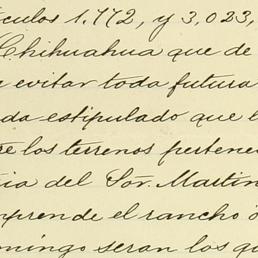 ículos 1.772, y 3,023,
Chihuahua que de
evitar toda futura
da estipulado que l
re los terrenos pertene
cia del Sor. Martin
mprende el rancho ó
omingo seran los qu